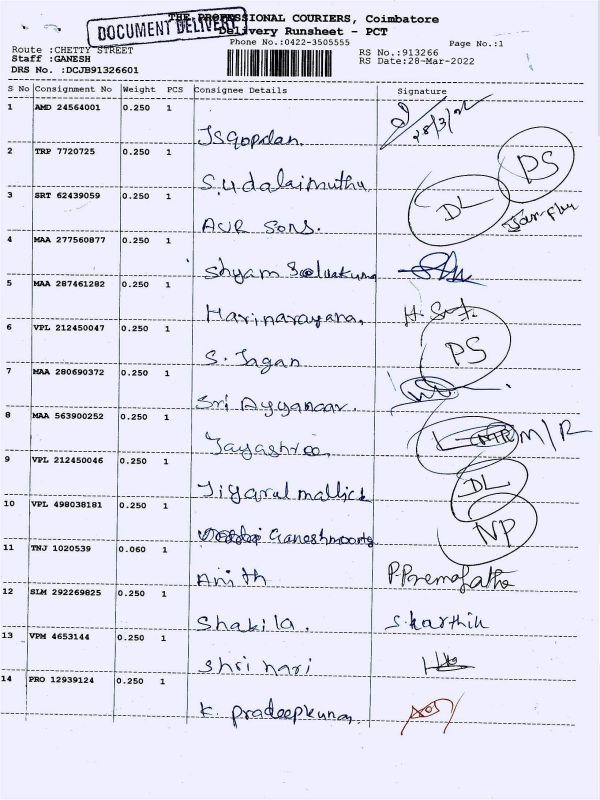 THE PROFESSIONAL COURIERS, Coimbatore
DOCUMENT DELIVERY
Delivery Runsheet - PCT
Phone No.:0422-3505555
Page No.:1
Route :CHETTY STREET
RS No.:913266
Staff :GANESH
RS Date:28-Mar-2022
DRS No. :DCJB91326601
S No Consignment No Weight PCS Consignee Details Signature
1 AMD 24564001 0.250 1
JSGopalan. 28/3/22
2 TRP 7720725 0.250 1
S. Udalaimuthu PS
3 SRT 62439059 0.250 1
AVR Sons. DL
4 MAA 277560877 0.250 1
Shyam
5 MAA 287461282 0.250 1
Harinarayana, H.
6 VPL 212450047 0.250 1
S. Jagan PS
7 MAA 280690372 0.250 1
Sri Ayyanaar.
8 MAA 563900252 0.250 1
Jayashree M/R
9 VPL 212450046 0.250 1
Jiyarul mallick DL
10 VPL 498038181 0.250 1
Ganeshmoorty NP
11 TNJ 1020539 0.060 1
Anith
12 SLM 292269825 0.250 1
Shakila. S.karthik
13 VPM 4653144 0.250 1
Shri hari
14 PRO 12939124 0.250 1
K. Pradeepkumar